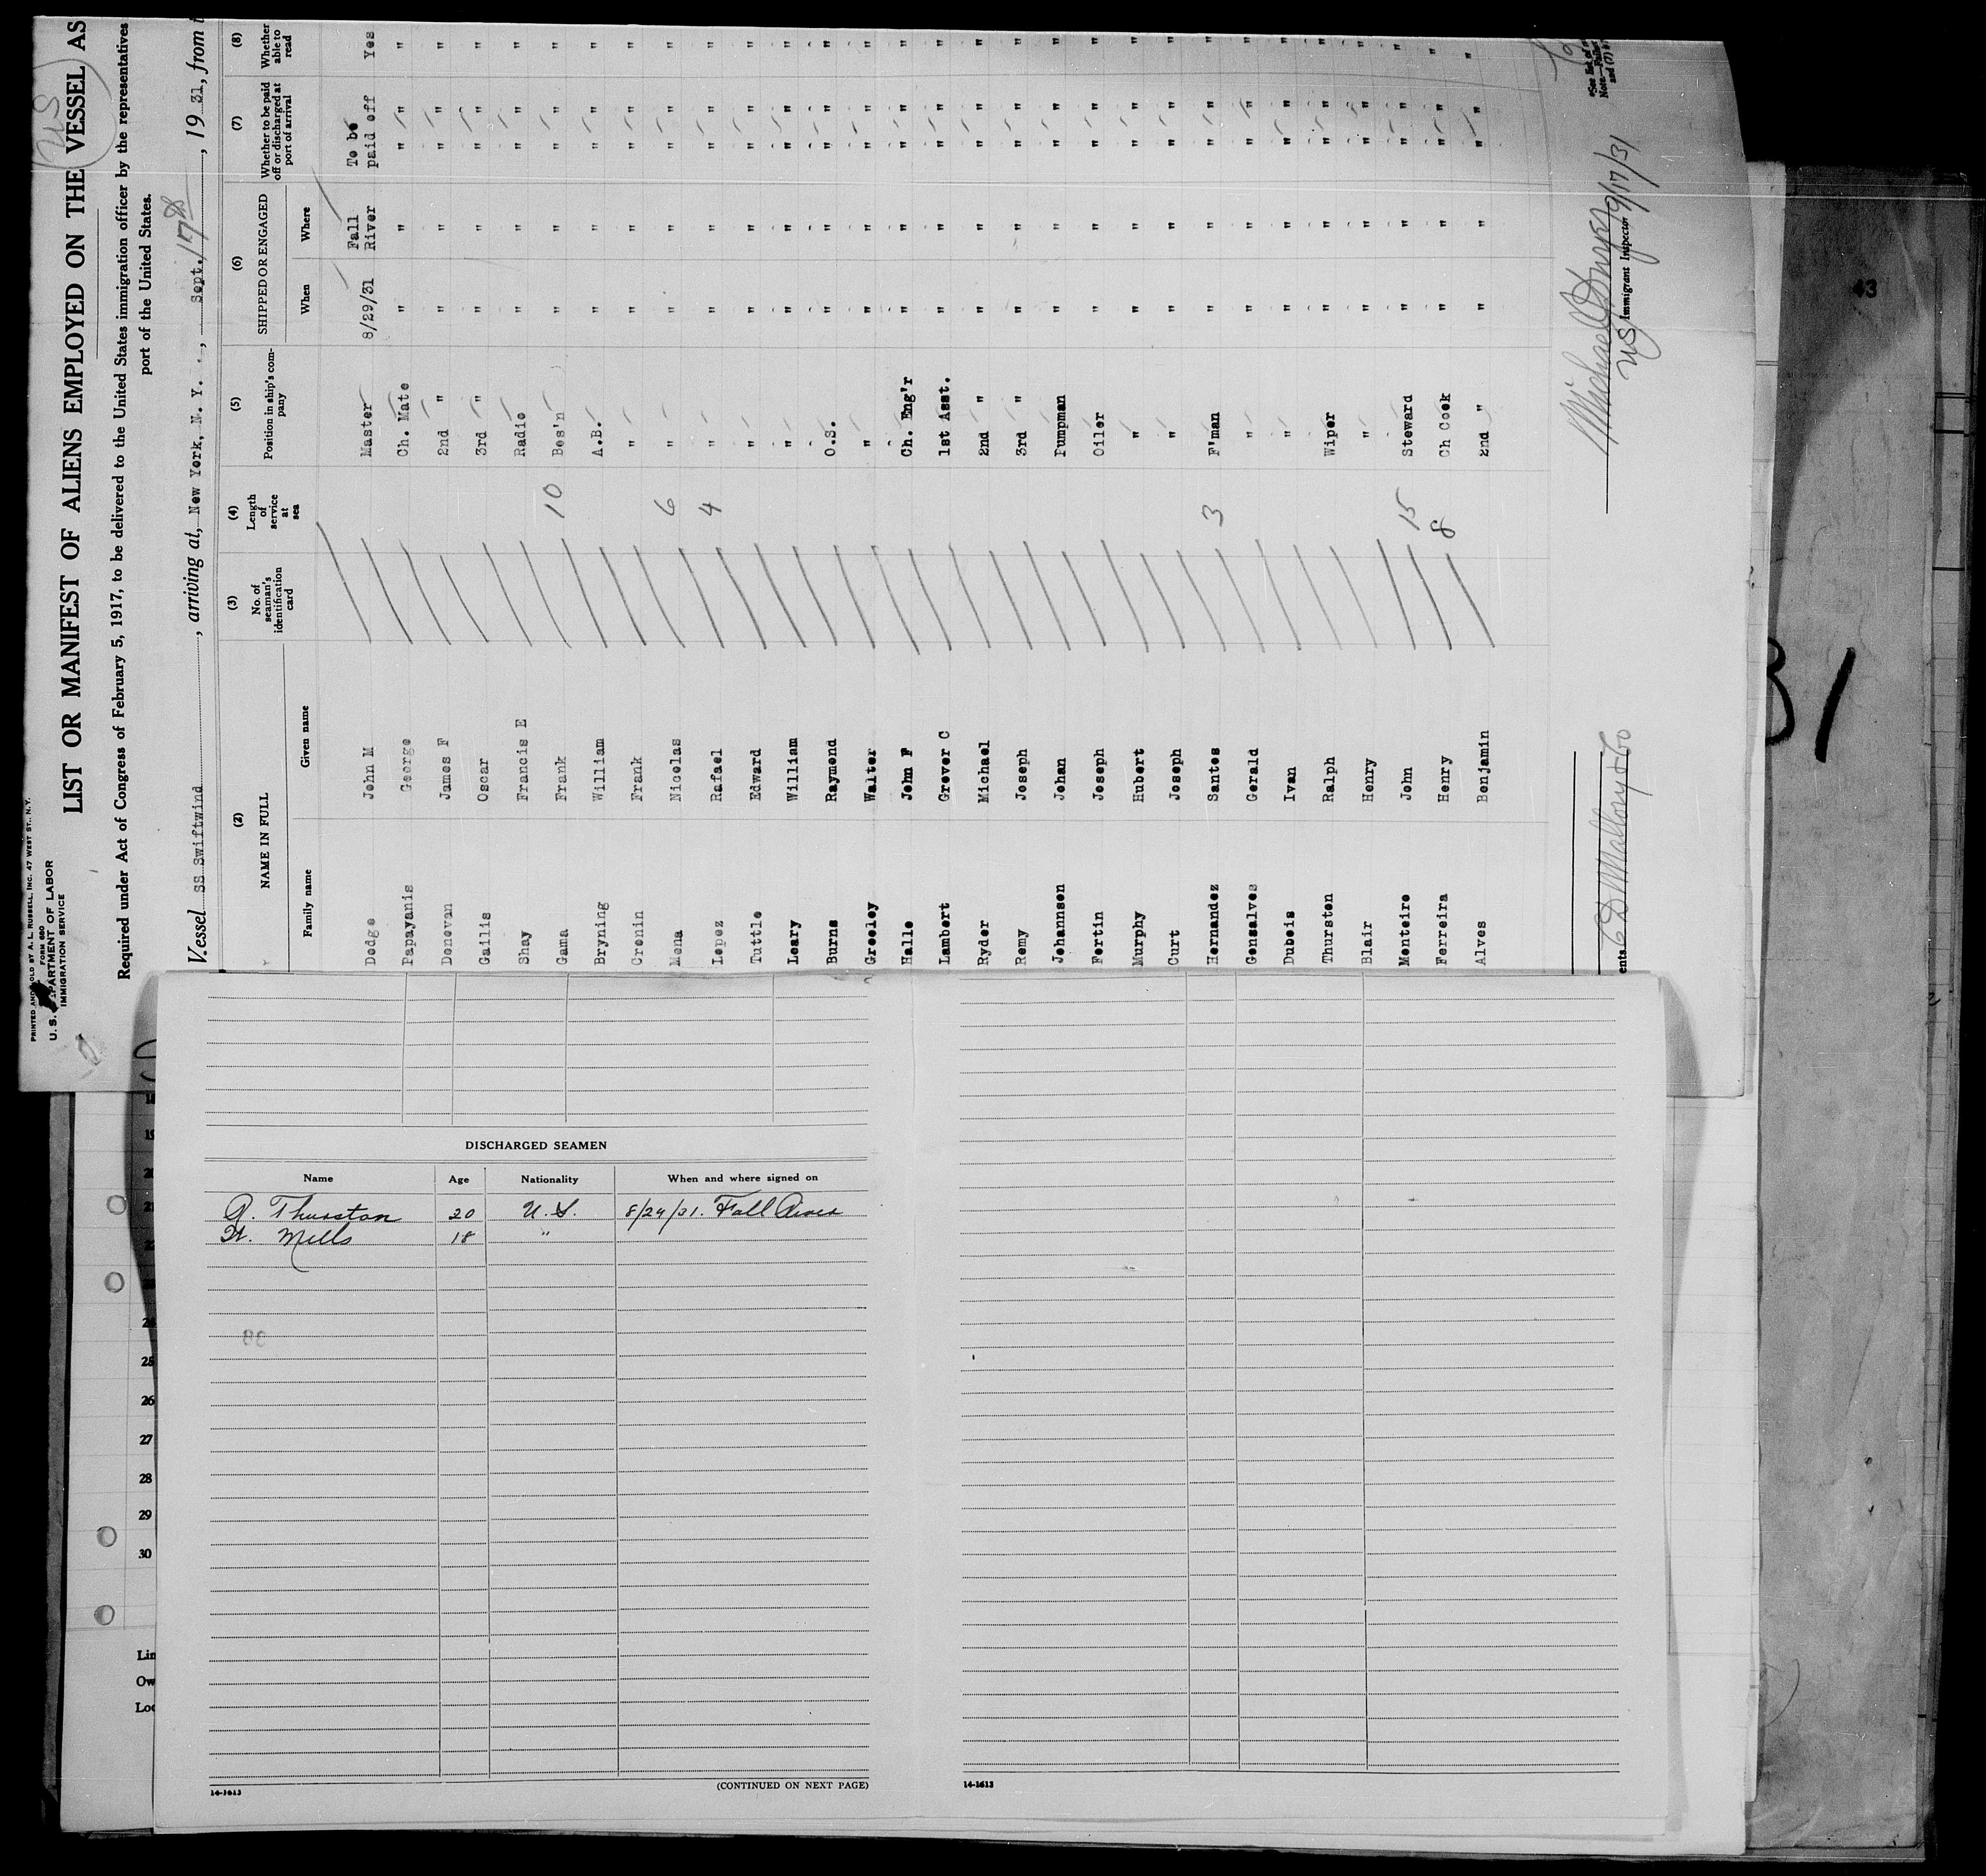 PRINTED AND SOLD BY A. L. RUSSELL, INC. 47 WEST ST., N.Y.
FORM 680
U. S. DEPARTMENT OF LABOR
IMMIGRATION SERVICE
US
LIST OR MANIFEST OF ALIENS EMPLOYED ON THE VESSEL AS
Required under Act of Congress of February 5, 1917, to be delivered to the United States immigration officer by the representatives
port of the United States.
Vessel SS Swiftwind, arriving at, New York, N. Y., Sept. 17th, 1931, from
(2) (3) (4) (5) (6) (7) (8)
NAME IN FULL No. of seaman's identification card Length of service at sea Position in ship's company SHIPPED OR ENGAGED Whether to be paid off or discharged at port of arrival Whether able to read
Family name Given name When Where
Dodge John M Master 8/29/31 Fall River To be paid off Yes
Papayanis George Ch. Mate " " " " "
Donovan James F 2nd " " " " " "
Gailis Oscar 3rd " " " " " "
Shay Francis E Radio " " " " "
Gama Frank 10 Bos'n " " " " "
Bryning William A.B. " " " " "
Cronin Frank " " " " " "
Mena Nicolas 6 " " " " " "
Lopez Rafael 4 " " " " " "
Tuttle Edward " " " " " "
Leary William " " " " " "
Burns Raymond O.S. " " " " "
Greeley Walter " " " " " "
Halle John F Ch. Eng'r " " " " "
Lambert Grover C 1st Asst. " " " " "
Ryder Michael 2nd " " " " " "
Remy Joseph 3rd " " " " " "
Johannsen Johan Pumpman " " " " "
Fortin Joseph Oiler " " " " "
Murphy Hubert " " " " " "
Curt Joseph " " " " " "
Hernandez Santos 3 F'man " " " " "
Gonsalves Gerald " " " " " "
Dubois Ivan " " " " " "
Thurston Ralph Wiper " " " " "
Blair Henry " " " " " "
Monteiro John 15 Steward " " " " "
Ferreira Henry 8 Ch Cook " " " " "
Alves Benjamin 2nd " " " " " "
ents C D Mallory & Co
Michael 9/17/31
US Immigrant Inspector
*See list of
and (7)
43
31
DISCHARGED SEAMEN
Name Age Nationality When and where signed on
R. Thurston 20 U.S. 8/29/31. Fall River
H. Mills 18 "
88
18
19
20
21
22
23
24
25
26
27
28
29
30
Lin
Ow
Loc
14-1613
(CONTINUED ON NEXT PAGE)
14-1613